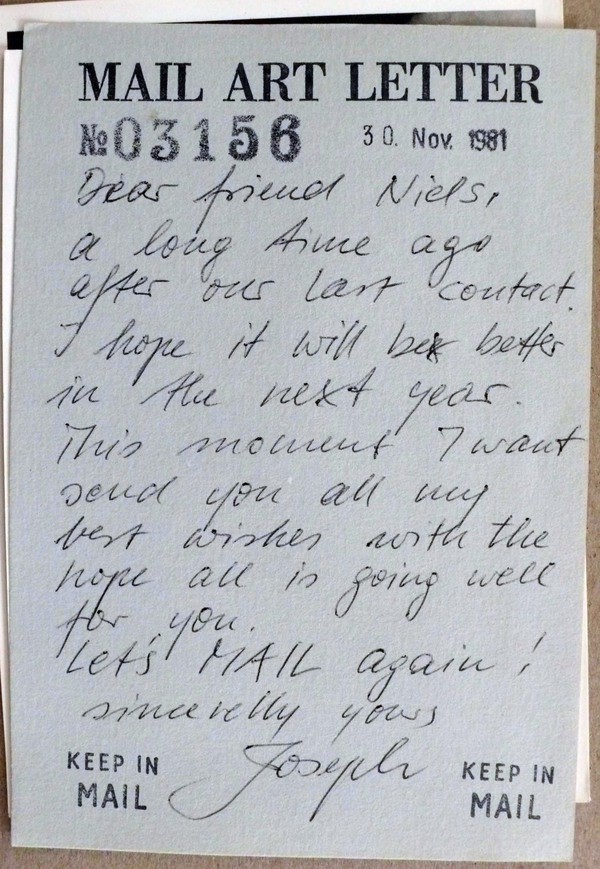 MAIL ART LETTER
№ 03156 30. Nov. 1981
Dear friend Niels,
a long time ago
after our last contact.
I hope it will be better
in the next year.
This moment I want
send you all my
best wishes with the
hope all is going well
for you.
Let's MAIL again!
sincerelly yours
Joseph
KEEP IN MAIL
KEEP IN MAIL